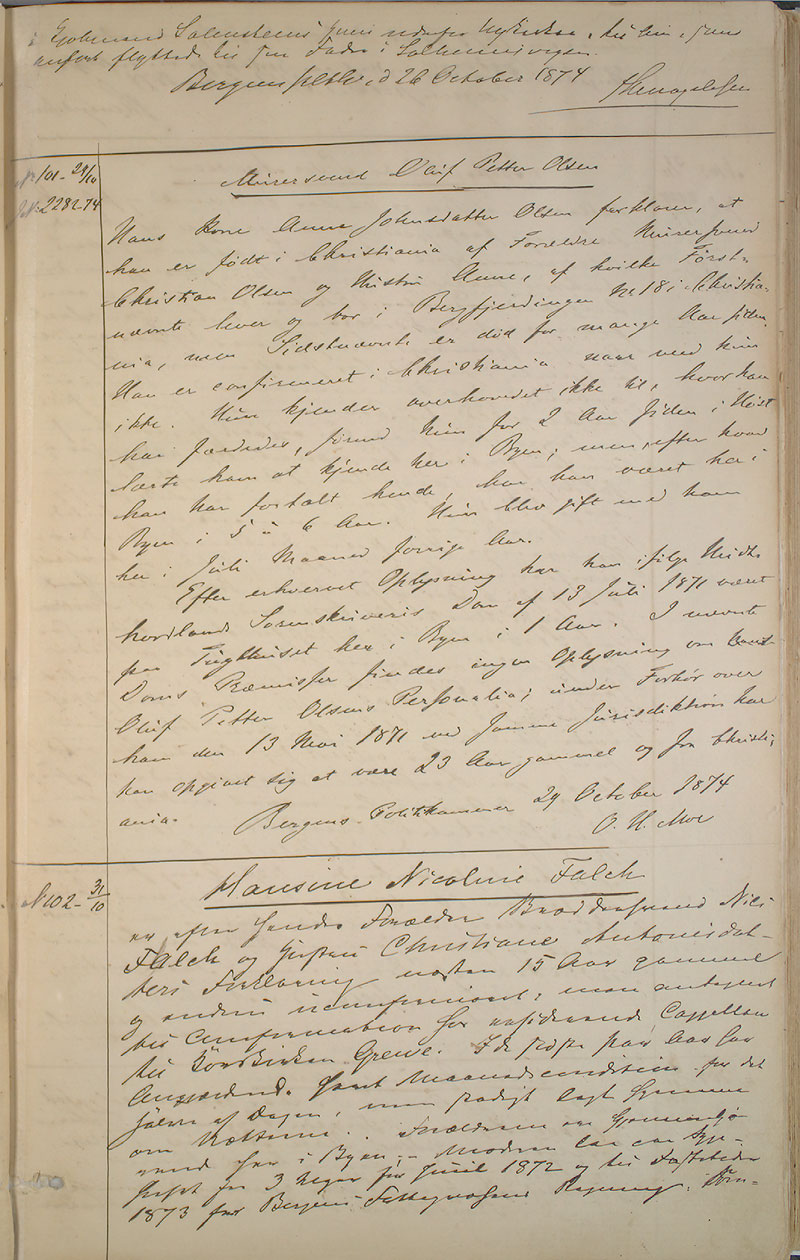 flyttede til sin Fader i Solheimsvigen.
Bergens d 26 October 1874
No 101 - 29/10
J.No 2282-74
Murersvend Oluf Petter Olsen
Hans Kone Anne Johnsdatter Olsen forklarer, at
han er født i Christiania af Forældre Murersvend
Christian Olsen og Hustru Anne, af hvilke Først-
nævnte lever og bor i Bergfjerdingen No 18 i Christia-
nia, men Sidstnævnte er død for mange Aar siden.
Han er confirmeret i Christiania naar veed hun
ikke. Hun kjender overhovedet ikke til, hvor han
har færdedes, førend hun for 2 Aar siden i Høst
lærte ham at kjende her i Byen; men, efter hvad
han har fortalt hende, har han været her i
Byen i 5 à 6 Aar. Hun blev gift med ham
her i Juli Maaned forrige Aar.
Efter erhvervet Oplysning har han ifølge Midt-
hordlands Sorenskriveris Dom af 13 Juli 1871 været
paa Tugthuset her i Byen i 1 Aar. I nævnte
Doms Præmisser findes ingen Oplysning om
Oluf Petter Olsens Personalia; under Forhør over
ham den 13 Mai 1871 ved samme Jurisdiktion har
han opgivet sig at være 23 Aar gammel og fra Christi-
ania.
Bergens Politikammer 29 October 1874
O. H. Moe
No 102 - 31/10
Hansine Nicoline Falch
er efter hendes Forældre Brøddersvend Nils
Falch og Hustru Christiane Antonisdat-
ters Forklaring næsten 15 Aar gammel
og endnu uconfirmeret; men antaget
til Confirmation for residerende Cappellan
til Korskirken Greve. I de sidste par Aar har
havt Maanedscondition for det
halve af Dagen, men stadigt lagt hjemme
om Nætterne. Forældrene ere hjemmehø-
rende her i Byen; Moderen har
for 3 Uger før Juul 1872 og til
1873 for Bergens Fattigvæsens Regning.